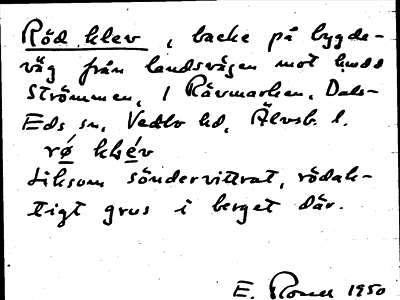 Röd klev, backe på bygde-
väg från landsvägen mot
Strömmen, i Rävmarken, Dals-
Eds sn, Vedbo hd, Älvsb. l.
rǿ klév
Liksom söndervittrat, rödak-
tigt grus i berget där.
E. 1950